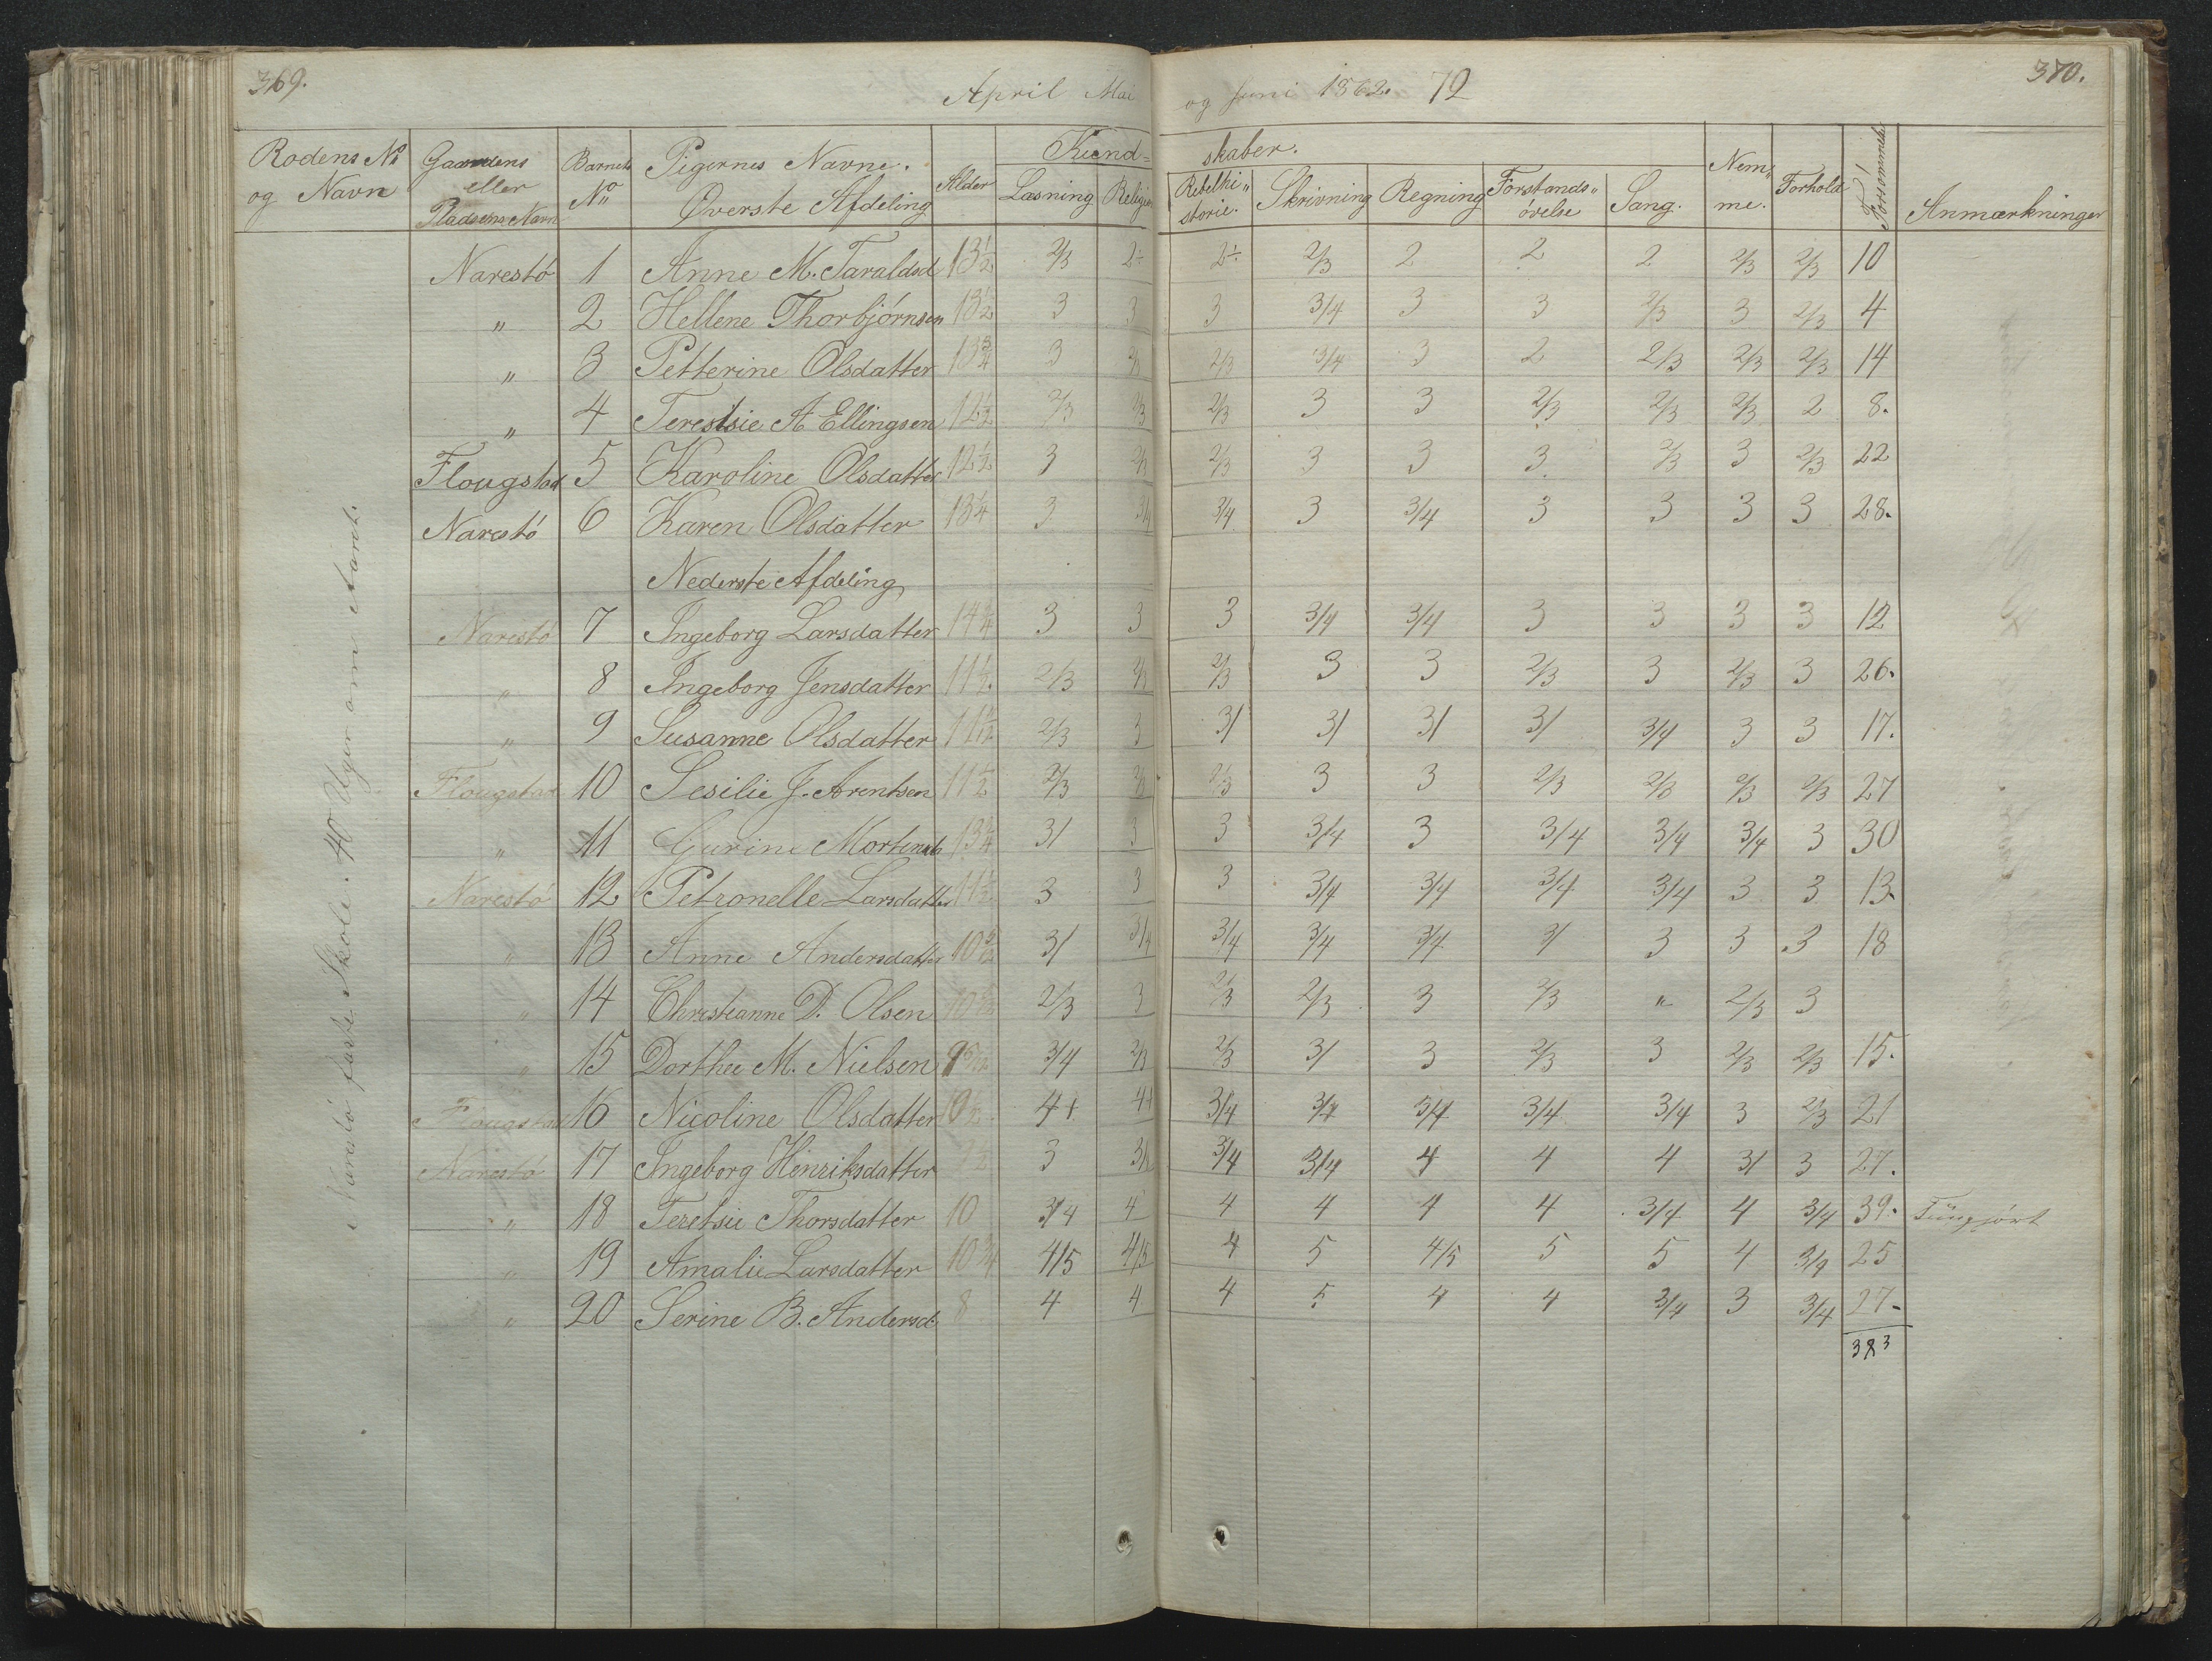 369.
April Mai og Juni 1862. 72
370.
Rodens No og Navn | Gaardens eller Pladsens Navn | Barnets No | Pigernes Navne. Øverste Afdeling | Alder | Kund= skaber. | Nem= me. | Forhold | Forsømmels. | Anmærkninger
Læsning | Religion | Bibelhi= storie. | Skrivning | Regning | Forstands= øvelse | Sang.
Narestø fast Skole. 40 Uger om Aaret.
Narestö 1 Anne M. Taraldsd 13½ 2/3 2÷ 2÷ 2/3 2 2 2 2/3 2/3 10
" 2 Hellene Thorbjörnsen 13½ 3 3 3 3/4 3 3 2/3 3 2/3 4
" 3 Petterine Olsdatter 13¾ 3 2/3 2/3 3/4 3 2 2/3 2/3 2/3 14
" 4 Terestsie A Ellingsen 12½ 2/3 2/3 2/3 3 3 2/3 2/3 2/3 2 8.
Flougstad 5 Karoline Olsdatter 12½ 3 2/3 2/3 3 3 3 2/3 3 2/3 22
Narestö 6 Karen Olsdatter 13¼ 3 3/4 3/4 3 3/4 3 3 3 3 28.
Nederste Afdeling
Narestö 7 Ingeborg Larsdatter 3 3 3 3/4 3/4 3 3 3 3 12
" 8 Ingeborg Jensdatter 11½ 2/3 2/3 2/3 3 3 2/3 3 2/3 3 26.
" 9 Susanne Olsdatter 2/3 3 3/ 3/ 3/ 3/ 3/4 3 3 17.
Flougstad 10 Sesilie J. Arentsen 11½ 2/3 2/3 2/3 3 3 2/3 2/3 2/3 2/3 27
" 11 Gurine Mortensd 3/ 3 3 3/4 3 3/4 3/4 3/4 3 30
Narestö 12 Petronelle Larsdatter 11½ 3 3 3 3/4 3/4 3/4 3/4 3 3 13
" 13 Anne Andersdatter 10 5/12 3/ 3/4 3/4 3/4 3/4 3/ 3 3 3 18
" 14 Christianne D. Olsen 2/3 3 2/3 2/3 3 2/3 " 2/3 3
" 15 Dorthee M. Nielsen 3/4 2/3 2/3 3/ 3 2/3 3 2/3 2/3 15.
Flougstad 16 Nicoline Olsdatter 10½ 4+ 4+ 3/4 3/4 3/4 3/4 3/4 3 2/3 21
Narestö 17 Ingeborg Henriksdatter 3 3/4 3/4 3/4 4 4 4 3/ 3 27.
" 18 Teretsie Thorsdatter 10 3/4 4 4 4 4 4 3/4 4 3/4 39.
" 19 Amalie Larsdatter 10¾ 4/5 4/5 4 5 4/5 5 5 4 3/4 25
" 20 Serine B. Andersd. 8 4 4 4 5 4 4 3/4 3 3/4 27.
383